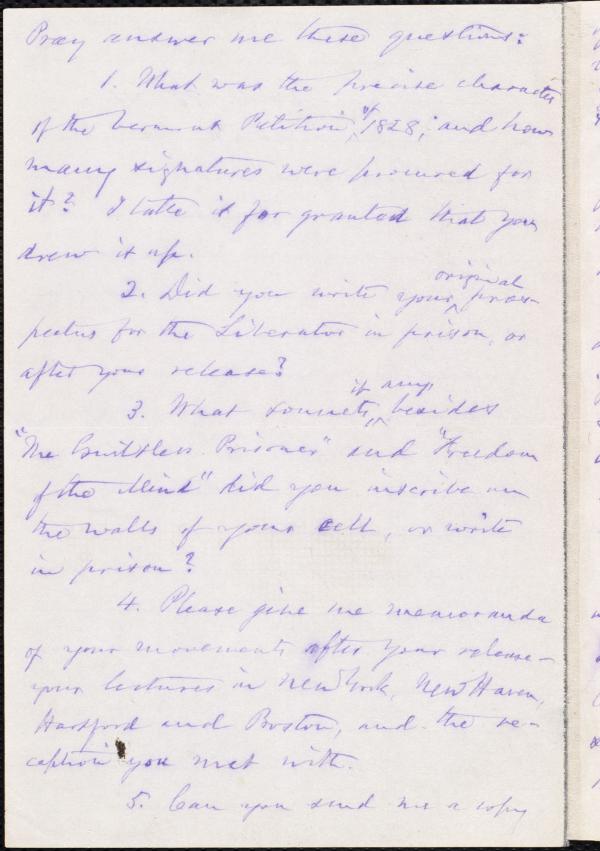 Pray answer me these questions:
1. What was the precise character
of the Vermont Petition, of 1828, and how
many signatures were procured for
it? I take it for granted that you
drew it up.
2. Did you write your original pros-
pectus for the Liberator in prison, or
after your release?
3. What sonnets, if any, besides
"The Guiltless Prisoner" and "Freedom
of the Mind" did you inscribe on
the walls of your cell, or write
in prison?
4. Please give me memoranda
of your movements after your release—
your lectures in New York, New Haven,
Hartford and Boston, and the re-
ception you met with.
5. Can you send me a copy